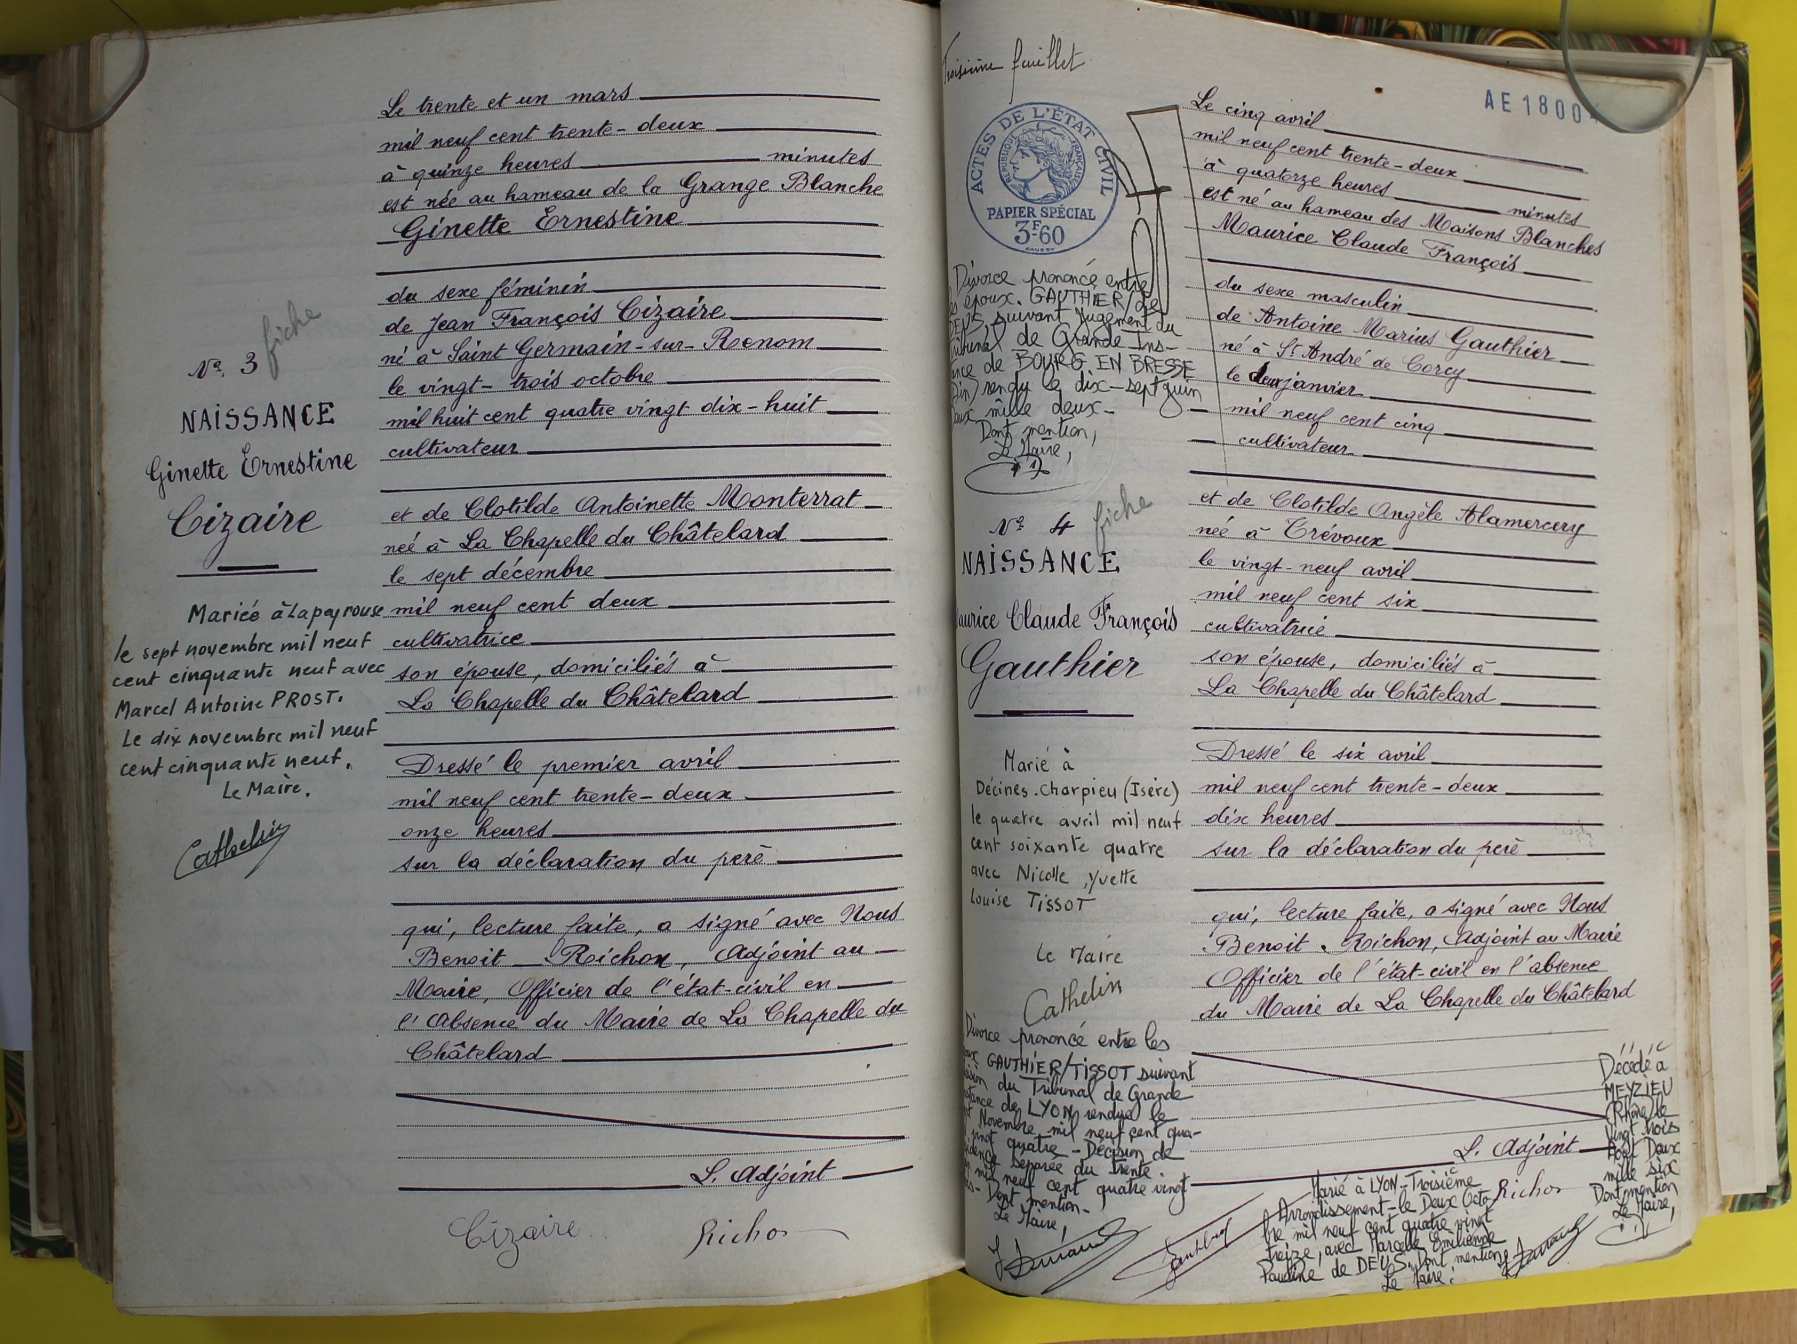 Le trente et un mars
mil neuf cent trente-deux
à quinze heures minutes
est née au hameau de la Grange Blanche
Ginette Ernestine
du sexe féminin
de Jean François Cizaire
né à Saint Germain-sur-Renom
le vingt-trois octobre
mil huit cent quatre vingt dix-huit
cultivateur
et de Clotilde Antoinette Monterrat
neé à La Chapelle du Châtelard
le sept décembre
mil neuf cent deux
cultivatrice
son épouse, domiciliés à
La Chapelle du Châtelard
Dressé le premier avril
mil neuf cent trente-deux
onze heures
sur la déclaration du père
qui, lecture faite, a signé avec Nous
Benoit Richon, Adjoint au
Maire, Officier de l'état-civil en
l'Absence du Maire de La Chapelle du
Châtelard
L. Adjoint
Cizaire Richon
fiche
N° 3
NAISSANCE
Ginette Ernestine
Cizaire
Mariée à Lapeyrouse
le sept novembre mil neuf
cent cinquante neuf avec
Marcel Antoine PROST.
Le dix novembre mil neuf
cent cinquante neuf.
Le Maire.
Cathelin
Troisième feuillet
AE 1800
ACTES DE L'ÉTAT CIVIL
RÉPUBLIQUE FRANÇAISE
PAPIER SPÉCIAL
3F.60
Divorce prononcé entre
époux. GAUTHIER/de
DEUS, suivant jugement du
Tribunal de Grande Ins-
tance de BOURG EN BRESSE
(Ain) rendu le dix-sept juin
deux mille deux-
Dont mention,
Le Maire,
N° 4 fiche
NAISSANCE
Maurice Claude François
Gauthier
Marié à
Décines-Charpieu (Isère)
le quatre avril mil neuf
cent soixante quatre
avec Nicolle, Yvette
Louise TISSOT
Le Maire
Cathelin
Divorce prononcé entre les
GAUTHIER/TISSOT suivant
du Tribunal de Grande
Instance de LYON rendue le
Novembre mil neuf cent qua-
vingt quatre - Décision de
résidence séparée du trente
mil neuf cent quatre vingt
Dont mention-
Le Maire,
Le cinq avril
mil neuf cent trente-deux
à quatorze heures minutes
est né au hameau des Maisons Blanches
Maurice Claude François
du sexe masculin
de Antoine Marius Gauthier
né à St André de Corcy
le deux janvier
mil neuf cent cinq
cultivateur
et de Clotilde Angèle Alamercery
neé à Trévoux
le vingt-neuf avril
mil neuf cent six
cultivatrice
son épouse, domiciliés à
La Chapelle du Châtelard
Dressé le six avril
mil neuf cent trente-deux
dix heures
sur la déclaration du père
qui, lecture faite, a signé avec Nous
Benoit Richon, Adjoint au Maire
Officier de l'état-civil en l'absence
du Maire de La Chapelle du Châtelard
L. Adjoint
Richon
Gauthier
Marié à LYON-Troisième
Arrondissement-le Deux Octo-
bre mil neuf cent quatre vingt
treize, avec Marcelle Emilienne
Pauline de DEUS. Dont mention
Le Maire.
Décédé à
MEYZIEU
(Rhône) le
Vingt trois
Août Deux
mille six
Dont mention
Le Maire,